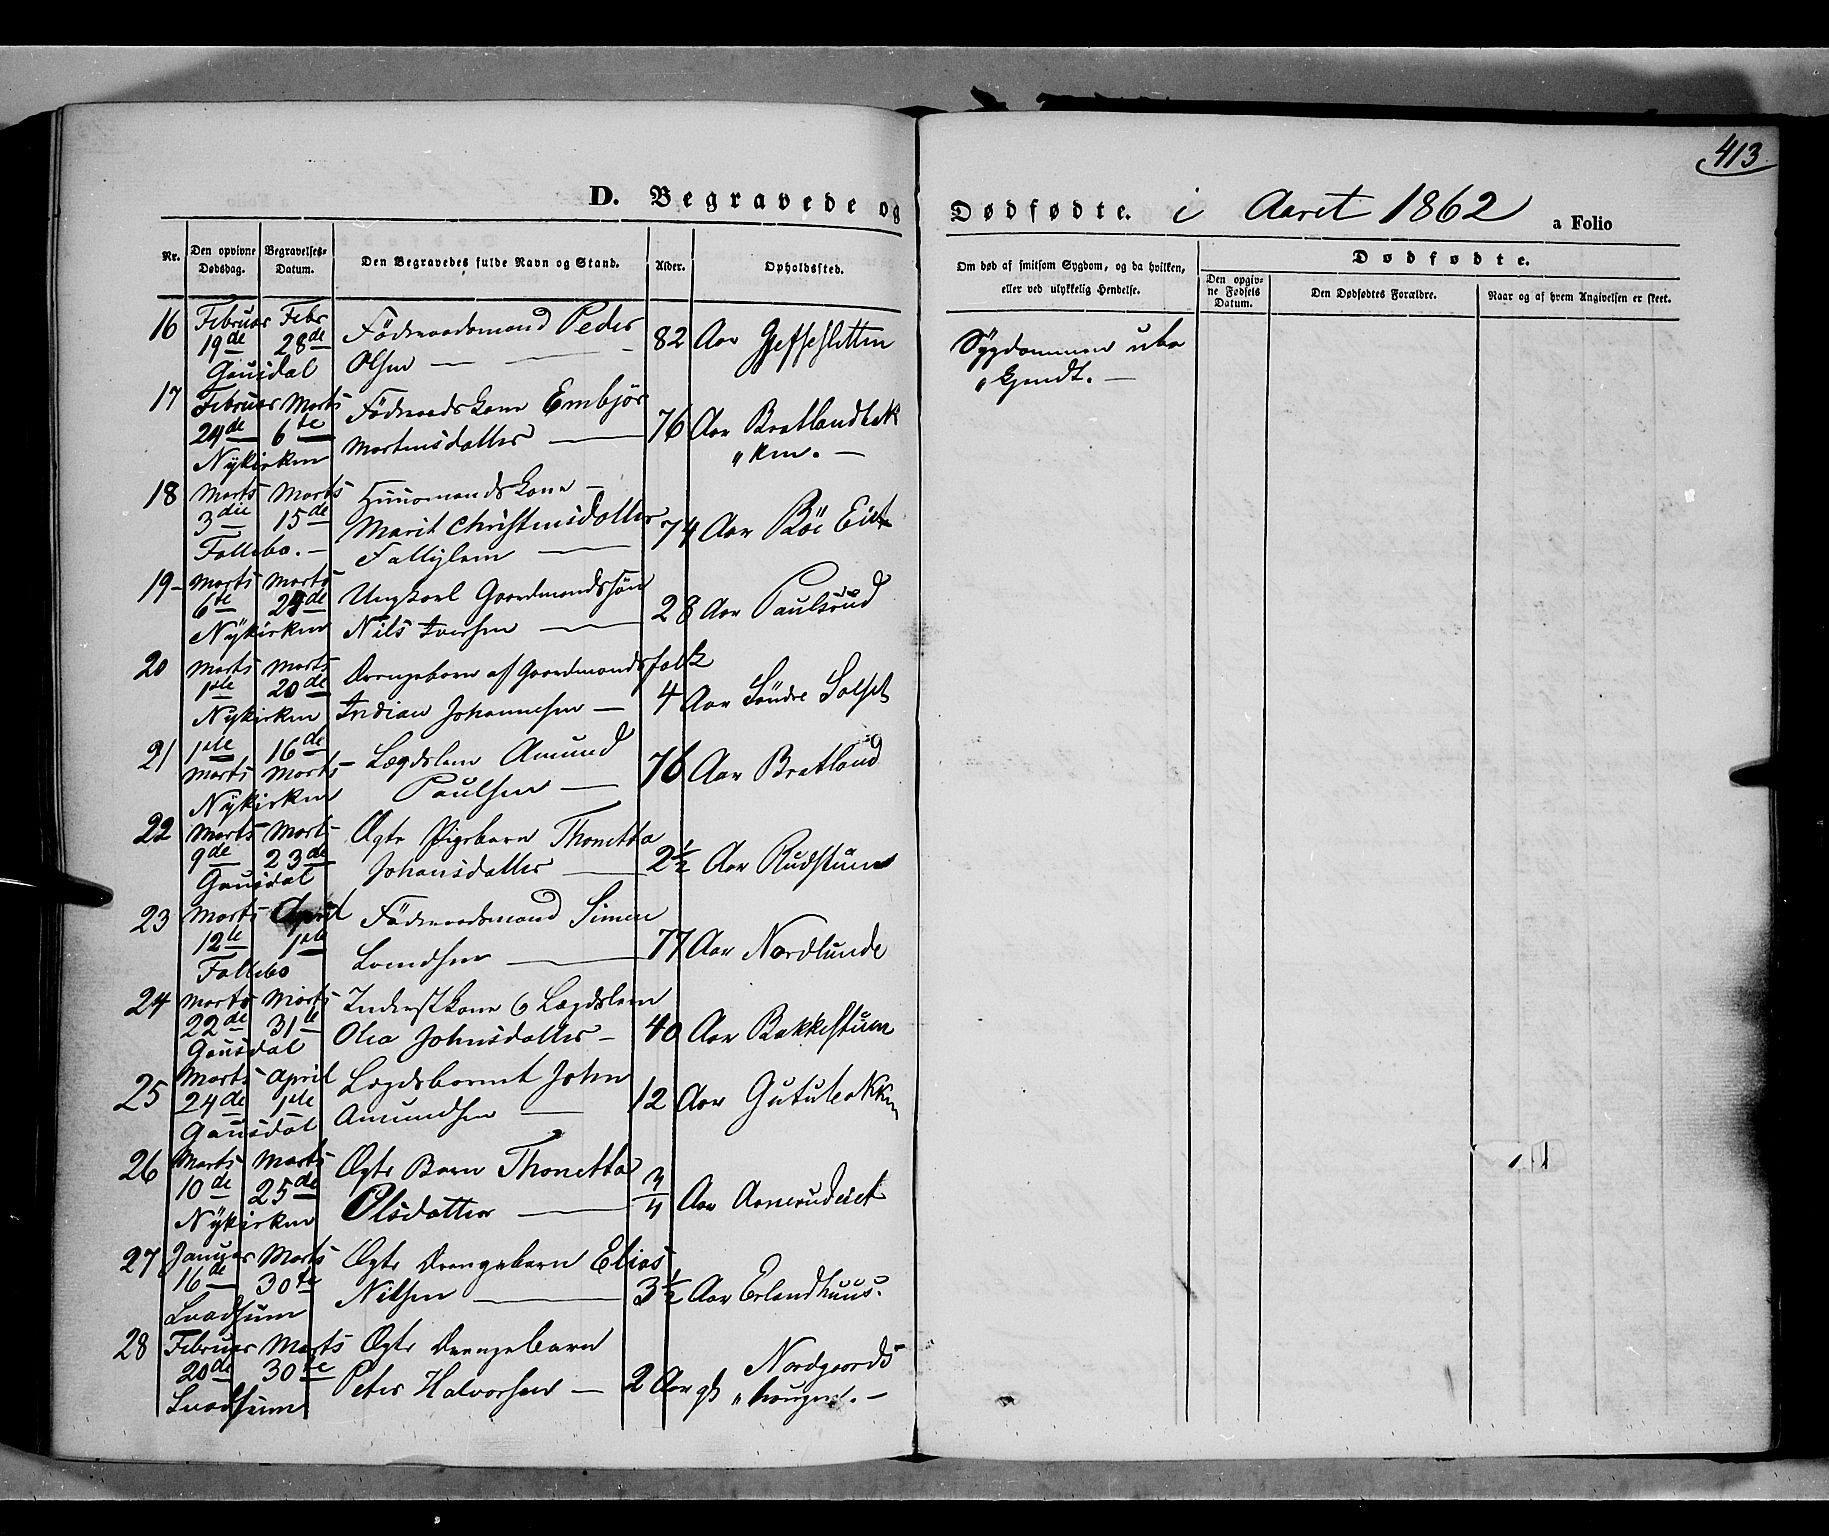 413.
D. Begravede og Dødfødte. i Aaret 1862 a Folio
Nr. Den opgivne Dødsdag. Begravelses-Datum. Den Begravedes fulde Navn og Stand. Alder. Opholdssted.
Om død af smitsom Sygdom, og da hvilken, eller ved ulykkelig Hendelse.
Dødfødte.
Den opgivne Fødsels Datum. Den Dødfødtes Forældre. Naar og af hvem Angivelsen er skeet.
16 Februar Febr Föderaadsmand Peder
19de 28de 82 Aar Sygdommen ube
Gausdal Olsen — „kjendt. —
17 Februar Marts Föderaadskone Embjör
24de 6te Mortensdatter — 76 Aar Bratlandbak
Nykirken „ken. —
18 Marts Marts Huusmandskone —
3die 15de Marit Christensdatter 74 Aar Böe Eiet
Follebo. —
19 Marts Marts Ungkarl Gaardmandssön
6te 28 Aar Paulsrud
Nÿkirken Nils Iversen —
20 Marts Marts Drengebarn af Gaardmandsfolk
1ste 20de 4 Aar Söndre Solset
Nykirken Indian Johannesen —
21 1ste 16de Lægdslem Amund
Marts Marts 76 Aar Bratland
Nÿkirken Paulsen —
22 Marts Marts Ægte Pigebarn Thonetta
9de 23de Johansdatter — 2½ Aar Rudstuen
Gausdal
23 Marts April Föderaadsmand Simen
12te 1ste 77 Aar Nordlunde
Follebo —
24 Marts Marts Inderstkone & Lægdslem
22de 31te Olea Johnsdatter — 40 Aar Bakkestuen
Gausdal
25 Marts April Lægdsbarnet John
24de 1ste Amundsen — 12 Aar
Gausdal
26 Marts Marts Ægte Barn Thonetta
10de 25de Olsdatter — 3/4 Aar
Nÿkirken
27 Januar Marts Ægte Drengebarn Elias
16de 30te Nilsen — 3½ Aar Erlandhuus.
Svadsum
28 Februar Marts Ægte Drengebarn Nordgaards
20de 30te Peter Halvorsen — 2 Aar „hougen. —
Svadsum